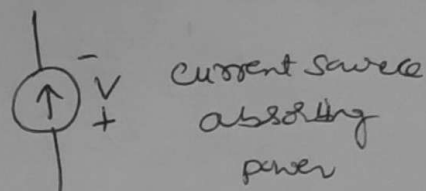 -
V
+
current source
absorbing
power